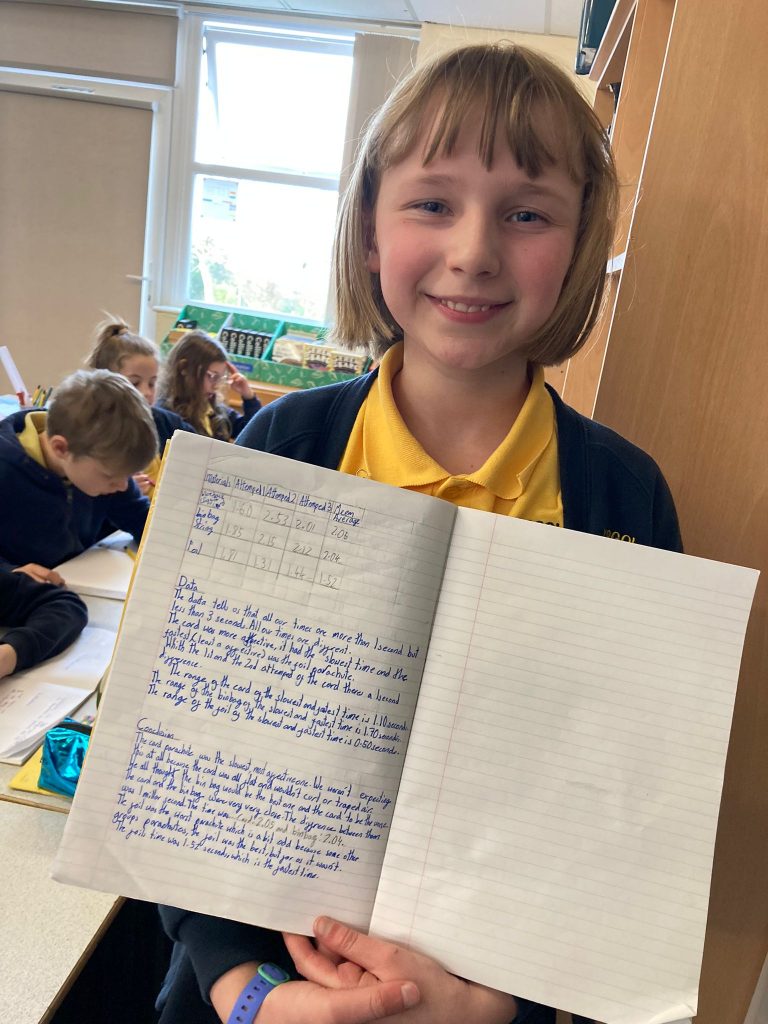 materials Attemped 1 Attemped 2 Attemped 3 Mean Average
1.60 2.53 2.01 2.05
binbag 1.85 2.15 2.12 2.04
string
Foil 1.81 1.31 1.44 1.52
Data
The data tells us that all our times are more than 1 second but
less than 3 seconds. All our times are diffrent.
The card was more affective, it had the slowest time and the
fastest (least affective) was the foil parachute.
With the 1st and the 2nd attemped of the card there a 1 second
diffrence.
The range of the card of the slowest and fastest time is 1.10 seconds.
The range of the binbag of the slowest and fastest time is 1.70 seconds.
The range of the foil of the slowest and fastest time is 0.50 seconds.
The card parachute was the slowest most affective one. We weren't expecting
this at all because the card was all flat and wouldn't curl or traped air.
We all thought the bin bag would be the best one and the card to be the worse.
The card and the bin bag were very very close. The diffrence between them
was 1 miller second. The time was card: 2.05 and binbag: 2.04.
The foil was the worst parachute which is a bit odd because some other
groups parachutes, the foil was the best, but for us it wasn't.
The foils time was 1.52 seconds, which is the fastest time.